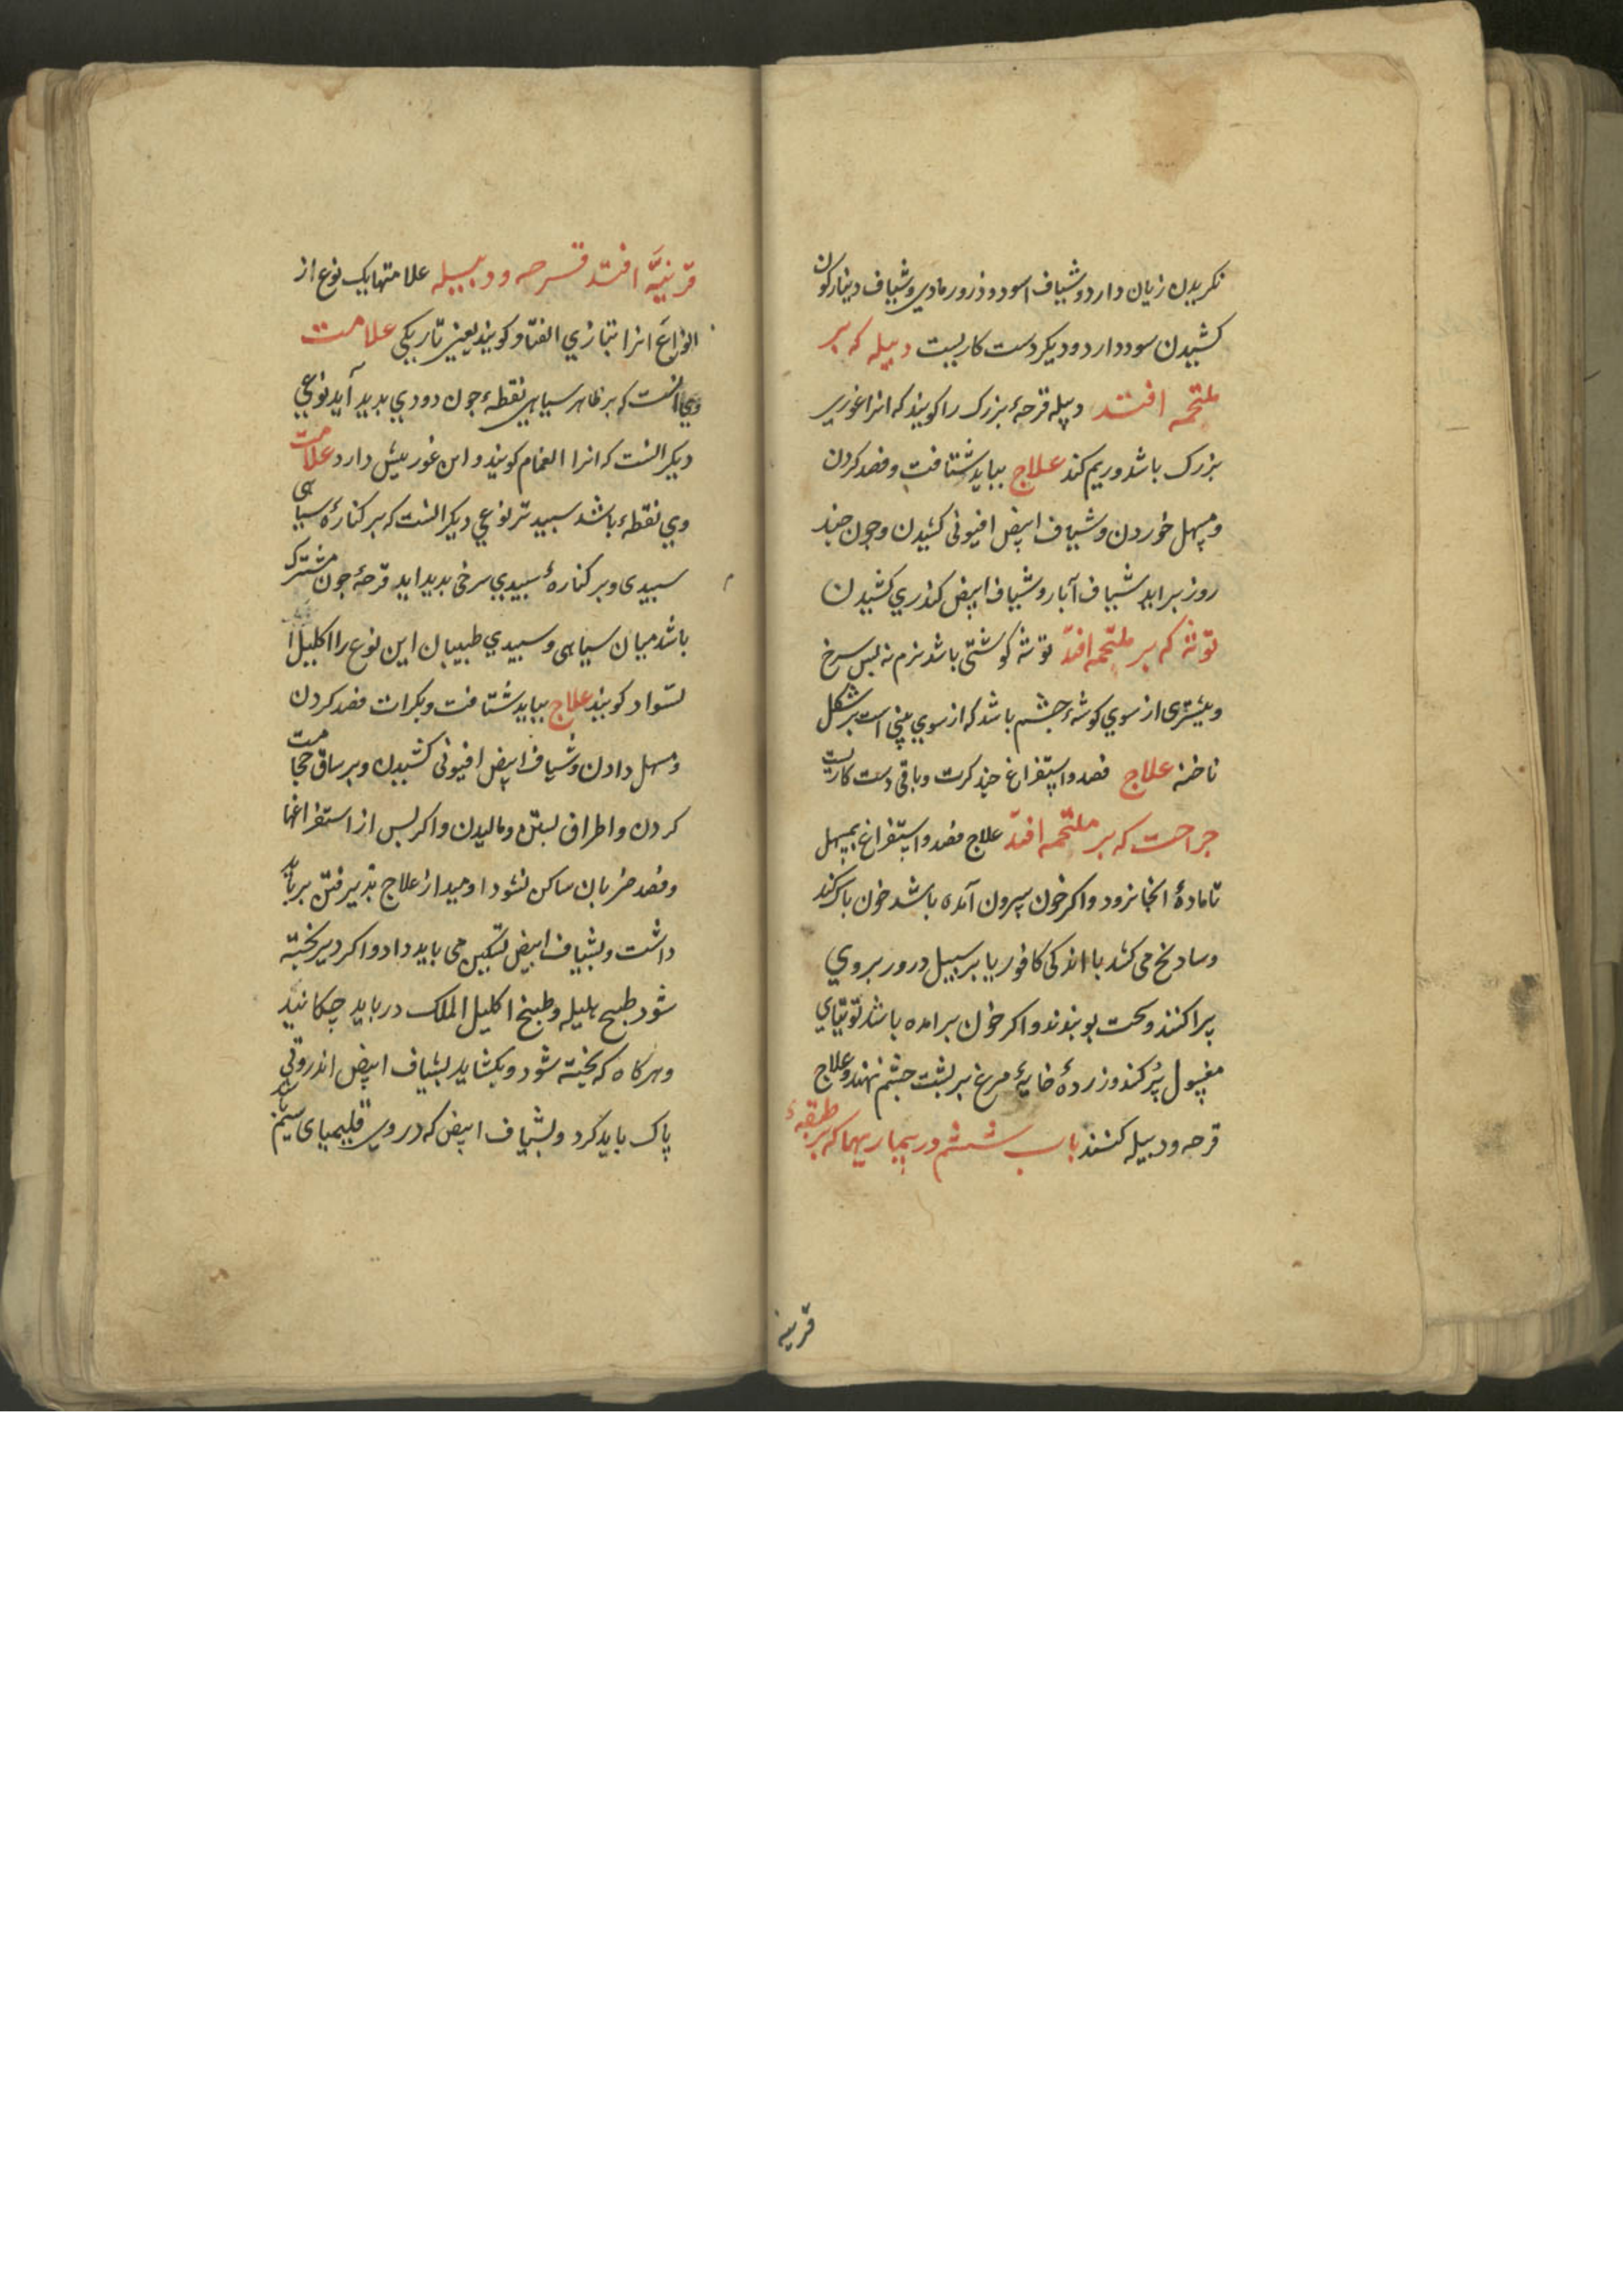 نکریدن زیان دارد و شیاف اسود و ذرور رمادی و شیاف دینارکون
کشیدن سود دارد و دیکر دست کاریست دبیله که بر
ملتحمه افتد دبیله قرحهٔ بزرک را کویند که انرا غوری
بزرک باشد و ریم کند علاج بباید شتافت و فصد کردن
و مسهل خوردن و شیاف ابیض افیونی کشیدن و چون چند
روز براید شیاف آبار و شیاف ابیض کندری کشیدن
توثه که بر ملتحمه افتد توثه کوشتی باشد نرم نه بس سرخ
و بیشتری از سوی کوشهٔ چشم باشد که از سوی بینی است بر شکل
ناخنه علاج فصد و استفراغ چند کرت و باقی دست کاریست
جراحت که بر ملتحمه افتد علاج فصد و استفراغ بمسهل
تا مادهٔ انجا نرود و اکر خون بیرون آمده باشد خون پاک کند
و سادنج می کشد با اندکی کافور یا بر سبیل درور بر وی
پراکنند و سخت بوبندند و اکر خون برامده باشد توتیای
مغسول پُر کند و زردهٔ خایهٔ مرغ بر پشت چشم نهند و علاج
قرحه و دبیله کنند باب ششم در بیماریهما که بر طبقهٔ
قرینه
قرنیّه افتد قرحه و دبیله علامتها یک نوع از
انواع انرا بتازی القتام کویند یعنی تاریکی علامت
وی انست که بر ظاهر سیاهی نقطهٔ چون دودی بدید آید نوعی
دیکر انست که انرا الغمام کویند و این غور بیش دارد علامت
وی نقطهٔ باشد سبیدتر نوعی دیکر انست که بر کنارهٔ سیاهی
سبیدی و بر کنارهٔ سبیدی سرخی بدید اید قرحهٔ چون مشترک
باشد میان سیاهی و سبیدی طبیبان این نوع را اکلیل ا
لسّواد کویند علاج بباید شتافت و بکرات فصد کردن
و مسهل دادن و شیاف ابیض افیونی کشیدن و بر ساق حجامت
کردن و اطراف بستن و مالیدن و اکر بس از استفراغها
و فصد ضربان ساکن نشود اومید از علاج پذیرفتن بر باید
داشت و بشیاف ابیض تسکین می باید داد و اکر دیر پخته
شود طبیخ هلیله و طبیخ اکلیل الملک در باید چکانید
و هرکاه که پخته شود و بکشاید بشیاف ابیض انزروتی
پاک باید کرد و بشیاف ابیض که در وی قلیمیای سیم باشد